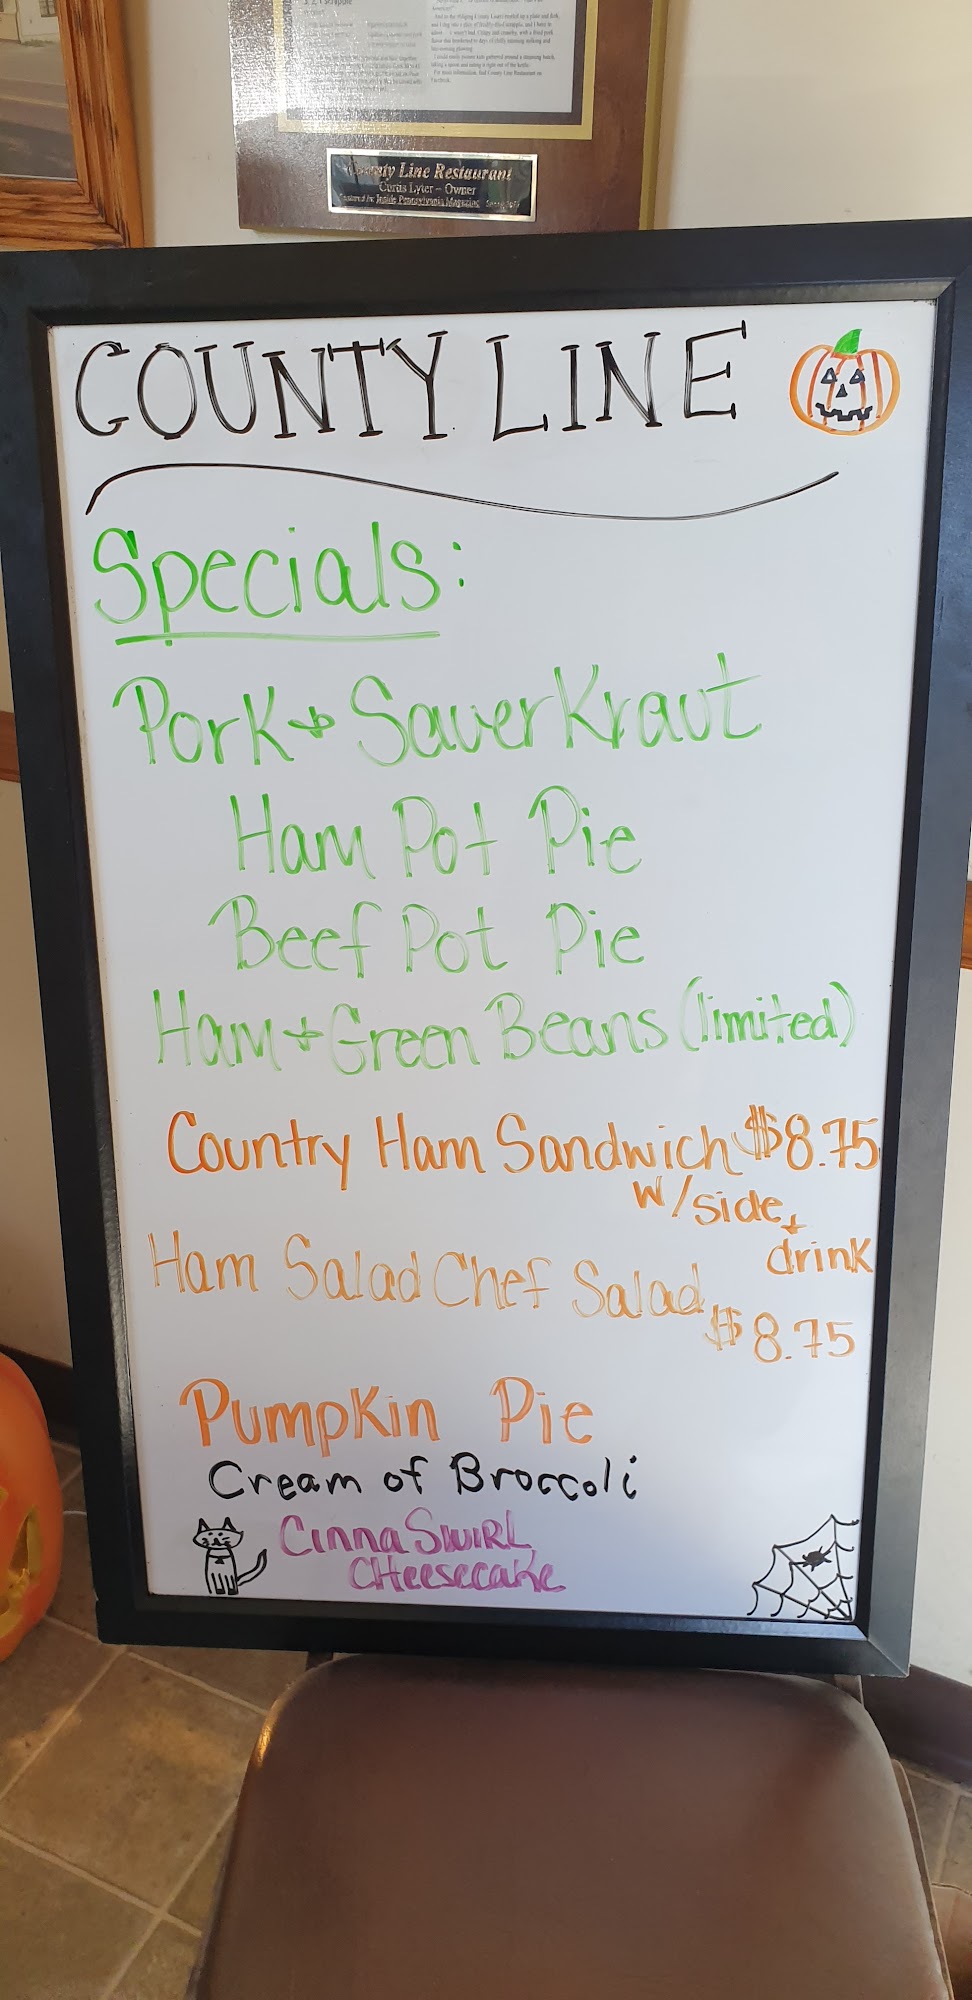 County Line Restaurant
Curtis Lyter - Owner
Inside Pennsylvania Magazine
COUNTY LINE
Specials:
Pork & SauerKraut
Ham Pot Pie
Beef Pot Pie
Ham & Green Beans (limited)
Country Ham Sandwich $8.75
w/side &
drink
Ham Salad Chef Salad
$8.75
Pumpkin Pie
Cream of Broccoli
CinnaSwiRL
CHeesecake